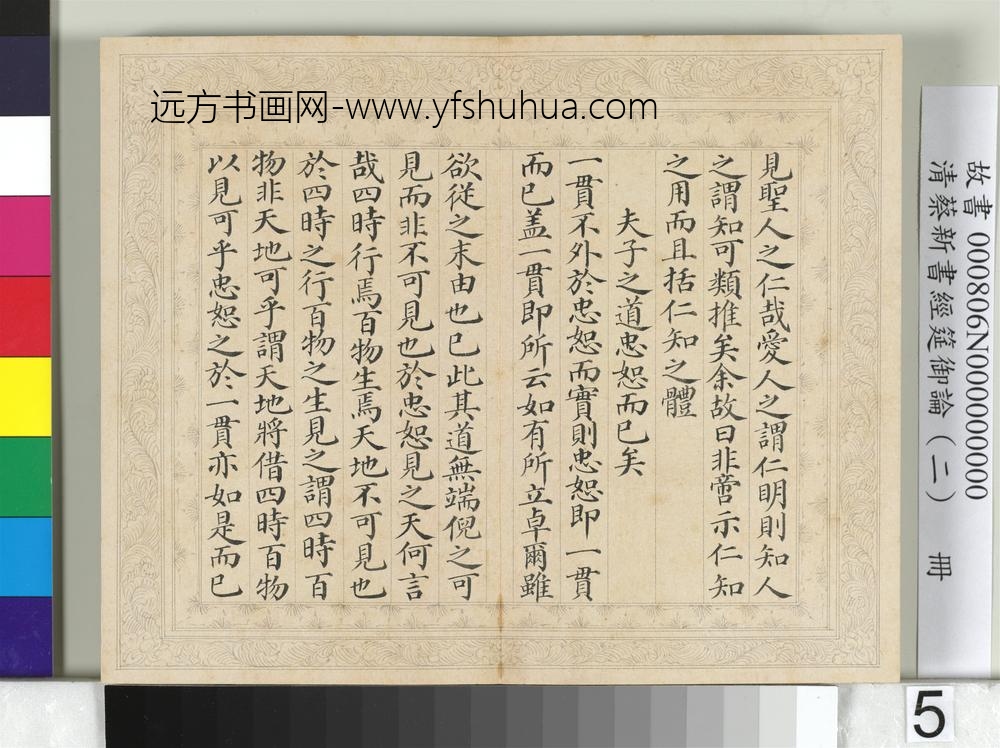 远方书画网-www.yfshuhua.com
見聖人之仁哉愛人之謂仁明則知人
之謂知可類推矣余故曰非啻示仁知
之用而且括仁知之體
夫子之道忠恕而已矣
一貫不外於忠恕而實則忠恕即一貫
而已盖一貫即所云如有所立卓爾雖
欲從之末由也已此其道無端倪之可
見而非不可見也於忠恕見之天何言
哉四時行焉百物生焉天地不可見也
於四時之行百物之生見之謂四時百
物非天地可乎謂天地將借四時百物
以見可乎忠恕之於一貫亦如是而已
故書 000806N000000000
清蔡新書經筵御論（二） 冊
5